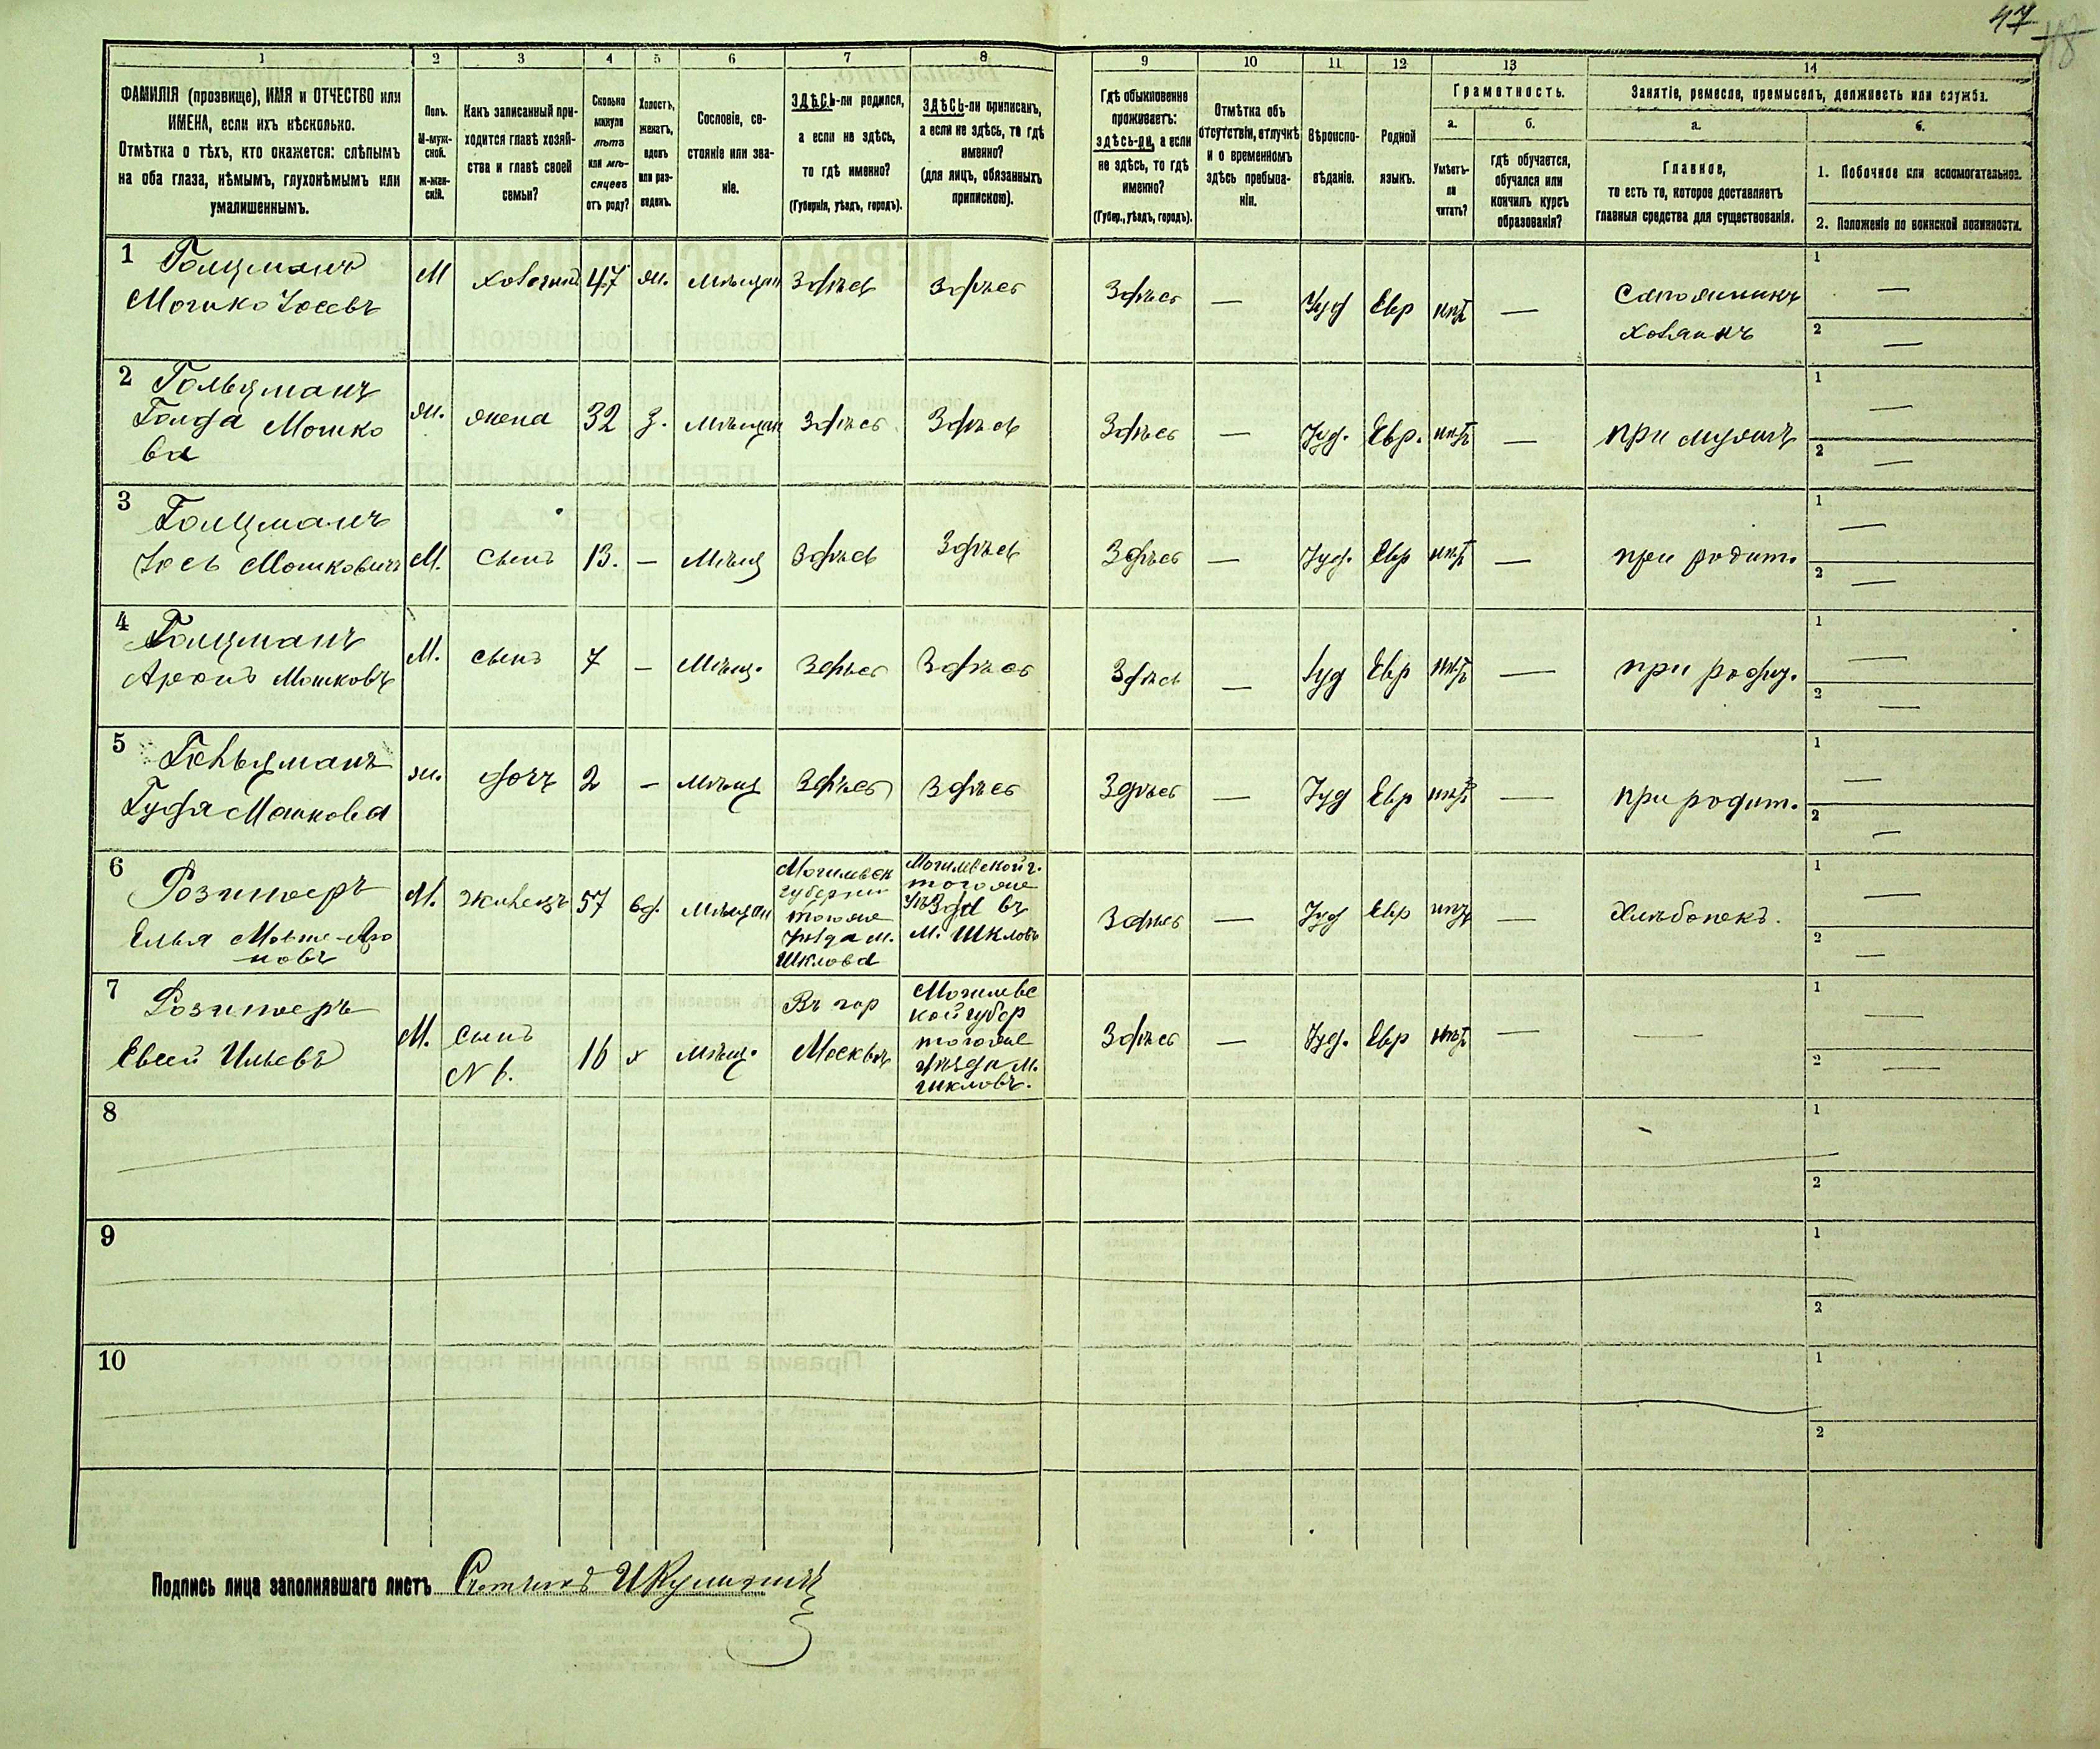 47
48
1
2
3
4
5
6
7
8
9
10
11
12
13
14
ФАМИЛІЯ (прозвище), ИМЯ и ОТЧЕСТВО или
ИМЕНА, если ихъ нѣсколько.
Отмѣтка о тѣхъ, кто окажется: слѣпымъ
на оба глаза, нѣмымъ, глухонѣмымъ или
умалишеннымъ.
Полъ.
М-муж-
ской.
Ж-жен-
скій.
Какъ записанный при-
ходится главѣ хозяй-
ства и главѣ своей
семьи?
Сколько
минуло
лѣтъ
или мѣ-
сяцевъ
отъ роду?
Холостъ,
женатъ,
вдовъ
или раз-
веденъ.
Сословіе, со-
стояніе или зва-
ніе.
ЗДѢСЬ-ли родился,
а если не здѣсь,
то гдѣ именно?
(Губернія, уѣздъ, городъ).
ЗДѢСЬ-ли приписанъ,
а если не здѣсь, то гдѣ
именно?
(для лицъ, обязанныхъ
припискою).
Гдѣ обыкновенно
проживаетъ:
здѣсь-ли, а если
не здѣсь, то гдѣ
именно?
(Губер., уѣздъ, городъ).
Отмѣтка объ
отсутствіи, отлучкѣ
и о временномъ
здѣсь пребыва-
ніи.
Вѣроиспо-
вѣданіе.
Родной
языкъ.
Грамотность.
а.
Умѣетъ-
ли
читать?
б.
гдѣ обучается,
обучался или
кончилъ курсъ
образованія?
Занятіе, ремесло, промыселъ, должность или служба.
а.
Главное,
то есть то, которое доставляетъ
главныя средства для существованія.
б.
1. Побочное или вспомогательное.
2. Положеніе по воинской повинности.
1 Голцманъ
Мошко Іосевъ
М
хозяинъ
47
ж.
мѣщан
Здѣсь
Здѣсь
Здѣсь
—
Іуд
Евр
нѣтъ
—
Сапожникъ
хозяинъ
1 —
2 —
2 Гольцманъ
Голда Мошко
ва
ж.
жена
32
з.
мѣщан
Здѣсь
Здѣсь
Здѣсь
—
Іуд.
Евр.
нѣтъ
—
при мужѣ
1 —
2 —
3 Голцманъ
Іось Мошковичъ
М.
сынъ
13.
—
Мѣщ
Здѣсь
Здѣсь
Здѣсь
—
Іуд.
Евр
нѣтъ
—
при родит.
1 —
2 —
4 Голцманъ
Аронъ Мошковъ
М.
сынъ
7
—
Мѣщ.
Здѣсь
Здѣсь
Здѣсь
—
Іуд
Евр
нѣтъ
—
при роди.
1 —
2 —
5 Гольцманъ
Гудя Мошкова
ж.
дочь
2
—
мѣщ
Здѣсь
Здѣсь
Здѣсь
—
Іуд
Евр
нѣтъ
—
при родит.
1 —
2 —
6
Елья Мовше-Аро
новъ
М.
жилецъ
57
вд.
мѣщан
Могилевск
губерніи
тогоже
уѣзда м.
Шклова
Могилевской г.
тогоже
уѣзда въ
м. Шкловѣ
Здѣсь
—
Іуд
Евр
нѣтъ
—
Хлѣбопекъ.
1 —
2 —
7
Евсей Ильевъ
М.
сынъ
N 6.
16
х
мѣщ.
Въ гор
Москвѣ
Могилевс
кой губер
тогоже
уѣзда м.
шкловъ.
Здѣсь
—
Іуд.
Евр
нѣтъ
—
—
1 —
2 —
8
1
2
9
1
2
10
1
2
Подпись лица заполнявшаго листъ Счетчикъ